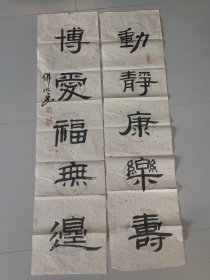 動靜康樂壽
博愛福無邊